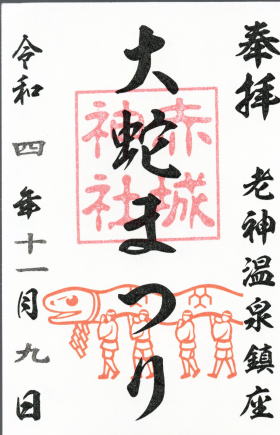 奉拝
老神温泉鎮座
大蛇まつり
赤城
神社
令和四年十一月九日